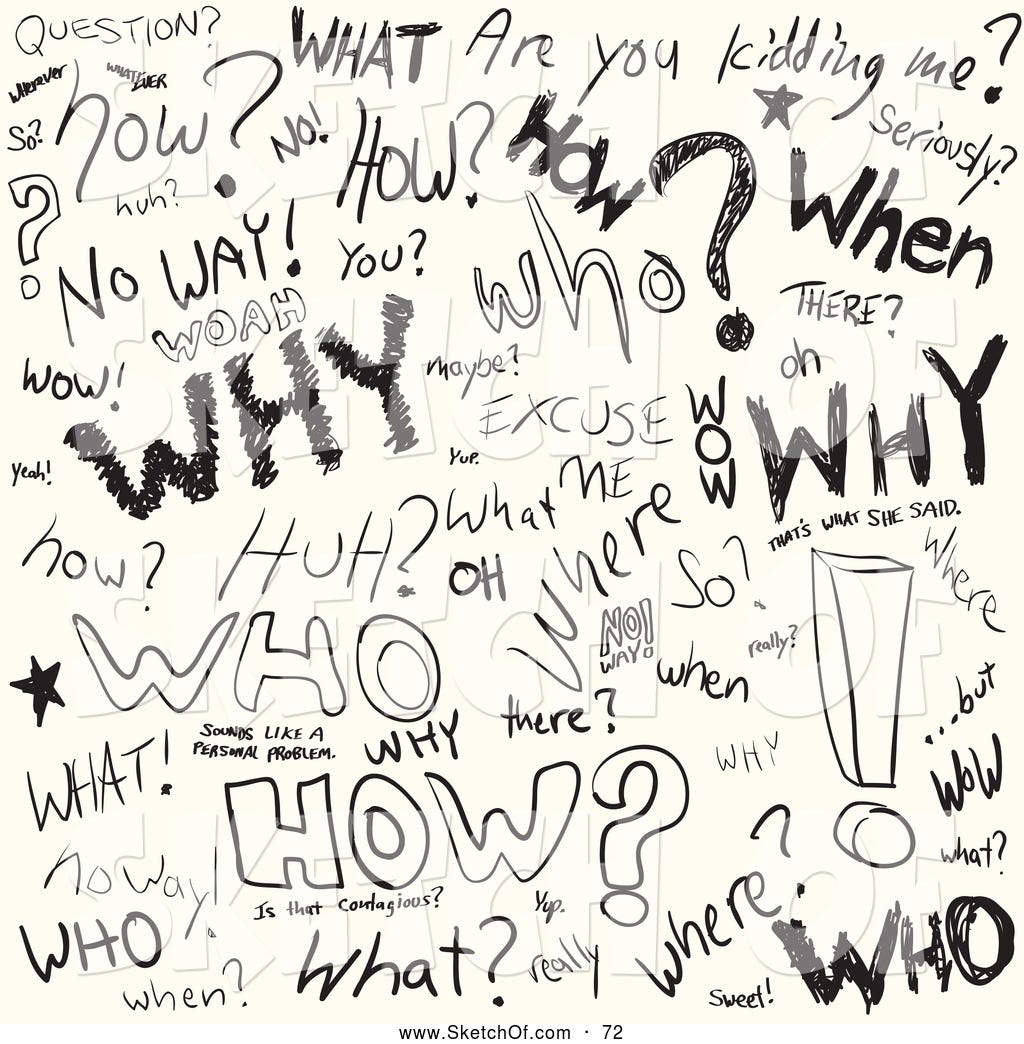 QUESTION?
WHAT
Are you kidding me?
Wherever
WHAT EVER
how?
So?
No!
How?
How?
Seriously?
When
huh?
No WAY!
You?
Who
THERE?
WOAH
WOW!
WHY
maybe?
oh
WHY
EXCUSE
ME
WOW
Yeah!
Yup.
What
THAT'S WHAT SHE SAID.
how?
HUH?
OH
Where
So?
Where
WHO
NO!
WAY!
really?
when
...but
SOUNDS LIKE A
PERSONAL PROBLEM.
WHY
there?
WHY
WHAT!
HOW?
WOW
what?
no way!
Is that Contagious?
Yup.
where?
WHO
WHO
what?
really
when?
Sweet!
SKETCH OF
SKETCH OF
SKETCH OF
SKETCH OF
www.SketchOf.com · 72